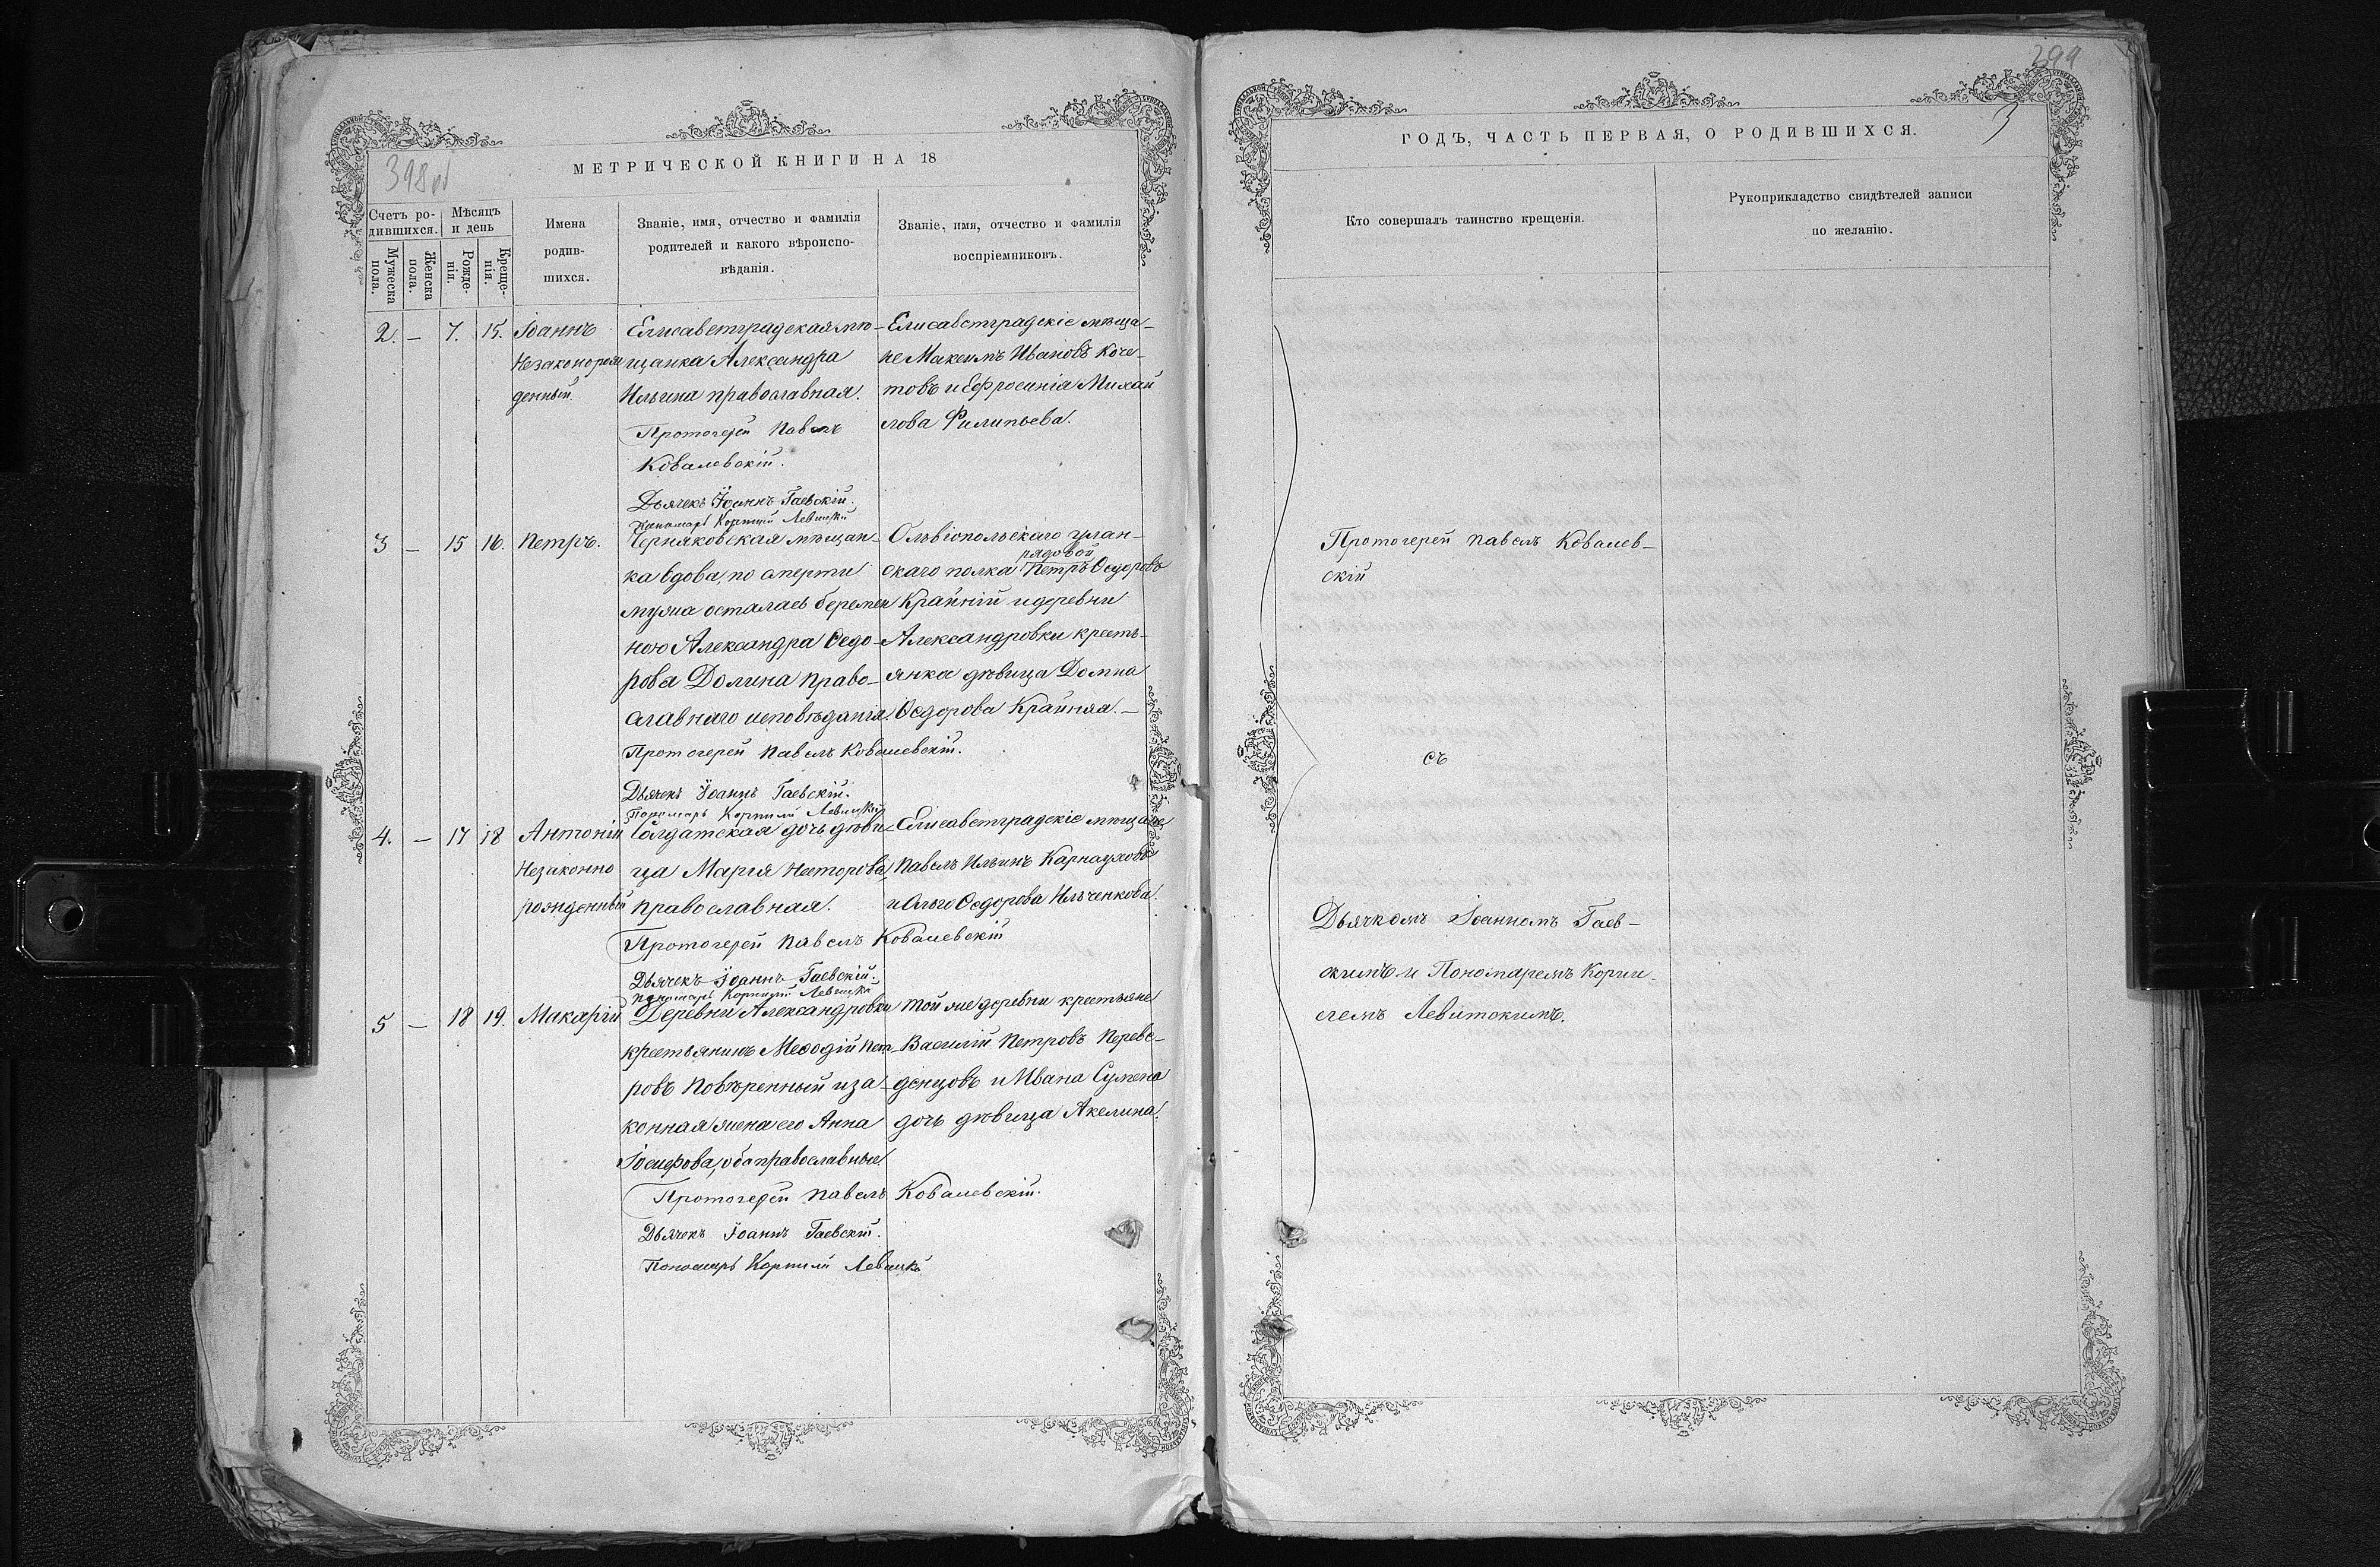 398 об
МЕТРИЧЕСКОЙ КНИГИ НА 18
Счетъ ро-
дившихся.
Мѣсяцъ
и день
Мужеска
пола.
Женска
пола.
Рожде-
нія.
Креще-
нія.
Имена
родив-
шихся.
Званіе, имя, отчество и фамилія
родителей и какого вѣроиспо-
вѣданія.
Званіе, имя, отчество и фамилія
воспріемниковъ.
2. – 7. 15. Іоаннъ
Незаконорож
денный.
Елисаветградская мѣ-
щанка Александра
Ильина православная.
Протоіерей Павелъ
Ковалевскій.
Дьячекъ Іоаннъ Гаевскій.
Пономарь Корнилій Левитскій
Елисаветградскіе мѣща-
не Максимъ Ивановъ Коче-
товъ и Ефросинія Михай
лова Филипьева.
3 – 15 16. Петръ.
Черняковская мѣщан-
ка вдова, по смерти
мужа осталась беремен
ною Александра Ѳедо-
рова Долина право-
славнаго исповѣданія.
Протоіерей Павелъ Ковалевскій.
Дьячекъ Іоаннъ Гаевскій.
Пономарь Корнилій Левитскій
Ольвіопольскаго улан-
рядовой
скаго полка Петръ Ѳедоровъ
Крайній и деревни
Александровки кресть-
янка дѣвица Домна
Ѳедорова Крайняя. –
4. – 17 18 Антоній
Незаконно
рожденный
Солдатская дочь дѣви-
ца Марія Несторова,
православная.
Протоіерей Павелъ Ковалевскій
Дьячекъ Іоаннъ Гаевскій.
Пономарь Корнилій Левитскій
Елисаветградскіе мѣщане
Павелъ Ильинъ Карнауховъ
и Ольго Ѳедорова Ильченкова.
5 – 18 19. Макарій
Деревни Александровки
крестьянинъ Меѳодій Пет-
ровъ Повѣренный и за-
конная жена его Анна
Іосифова, оба православные.
Протоіерей Павелъ Ковалевскій.
Дьячекъ Іоаннъ Гаевскій.
Пономарь Корнилій Левитскій
Той же деревни крестьяне
Василій Петровъ Переве-
денцовъ и Ивана Сумена
дочь дѣвица Акелина.
399
3
ГОДЪ, ЧАСТЬ ПЕРВАЯ, О РОДИВШИХСЯ.
Кто совершалъ таинство крещенія.
Рукоприкладство свидѣтелей записи
по желанію.
Протоіерей Павелъ Ковалев-
скій
съ
Дьячкомъ Іоанномъ Гаев-
скимъ и Пономаремъ Корни-
ліемъ Левитскимъ.